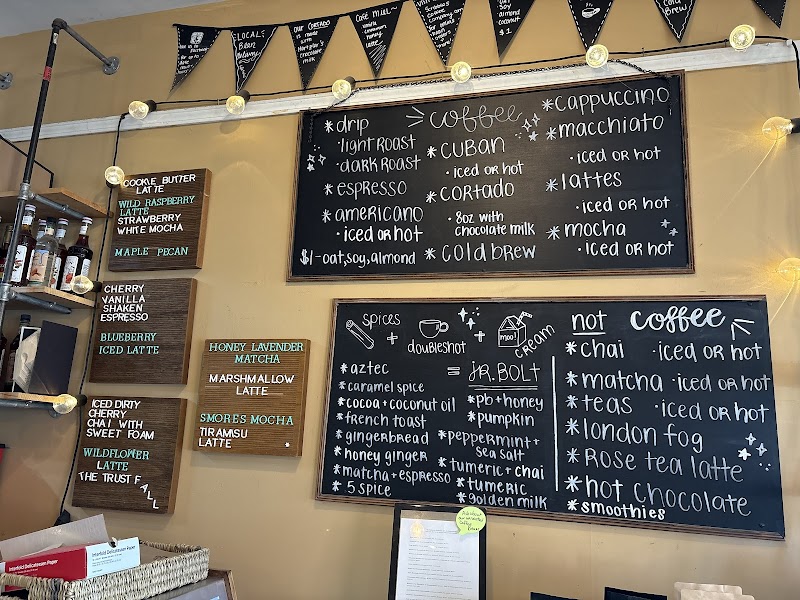 LOCAL!
Bean
OUR CORTADO
is made
with
chocolate
milk
Café Miel~
honey
latte
almond
coconut
$1
Cold
Brew
coffee
*drip
·light roast
·dark roast
*espresso
*americano
·iced or hot
$1-oat, soy, almond
*cuban
·iced or hot
*cortado
·8oz with
chocolate milk
*cold brew
*cappuccino
*macchiato
·iced or hot
*lattes
·iced or hot
*mocha
·iced or hot
COOKIE BUTTER
LATTE
WILD RASPBERRY
LATTE
STRAWBERRY
WHITE MOCHA
MAPLE PECAN
CHERRY
VANILLA
SHAKEN
ESPRESSO
BLUEBERRY
ICED LATTE
ICED DIRTY
CHERRY
CHAI WITH
SWEET FOAM
WILDFLOWER
LATTE
THE TRUST FALL
HONEY LAVENDER
MATCHA
MARSHMALLOW
LATTE
SMORES MOCHA
TIRAMISU
LATTE
spices
+
doubleshot
+
moo!
cream
= JR.BOLT
*aztec
*caramel spice
*cocoa+coconut oil
*french toast
*gingerbread
*honey ginger
*matcha+espresso
*5 spice
*pb+honey
*pumpkin
*peppermint+
sea salt
*tumeric+chai
*tumeric
*golden milk
not coffee
*chai ·iced or hot
*matcha ·iced or hot
*teas ·iced or hot
*london fog
*rose tea latte
*hot chocolate
*smoothies
Interfold Delicatessen Paper
Interfold Delicatessen Paper